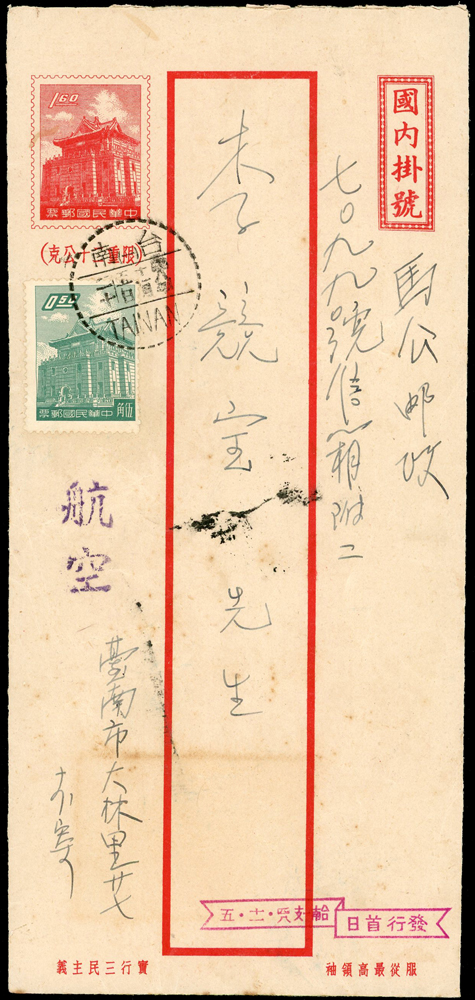 國內掛號
馬公邮政
七〇九九〇號信箱附二
李競宝先生
1.60
中華民國郵票
(限重二十公克)
台南
TAINAN
0.50
中華民國郵票
伍角
航空
臺南市大林里廿七
寄
發行首日
服從最高領袖
實行三民主義